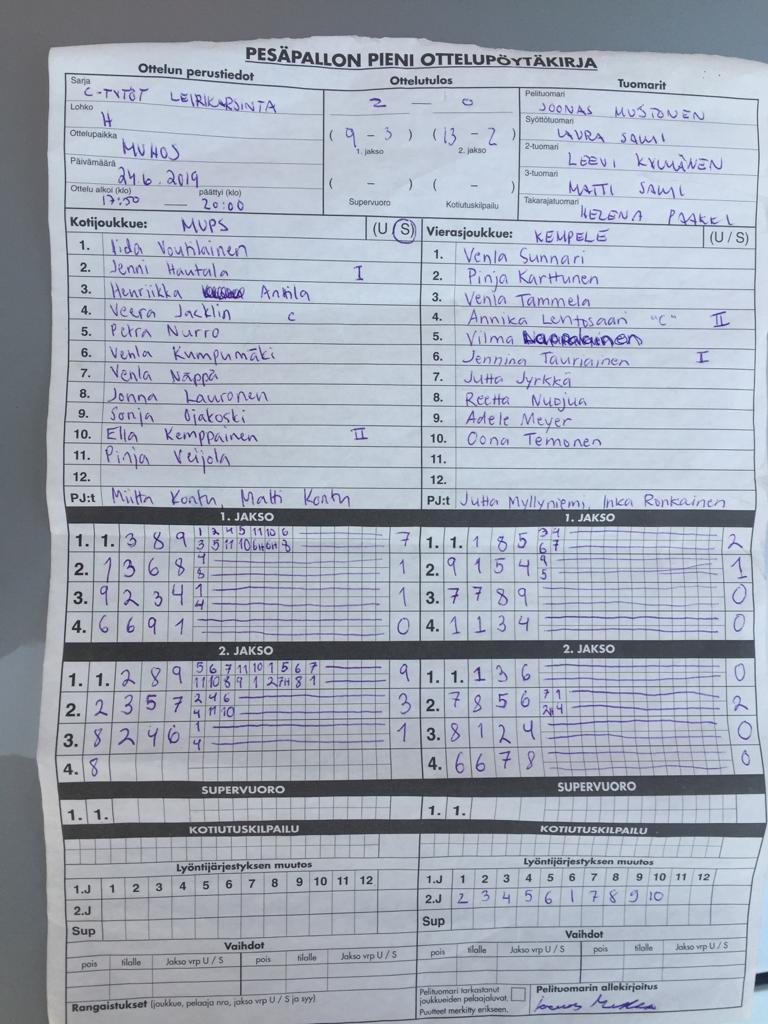 PESÄPALLON PIENI OTTELUPÖYTÄKIRJA
Ottelun perustiedot
Sarja
C-TYTÖT LEIRIKARSINTA
Lohko
H
Ottelupaikka
MUHOS
Päivämäärä
24.6.2019
Ottelu alkoi (klo) päättyi (klo)
17:50 20:00
Ottelutulos
2 — 0
( 9 - 3 ) ( 13 - 2 )
1. jakso 2. jakso
( - ) ( - )
Supervuoro Kotiutuskilpailu
Tuomarit
Pelituomari
JOONAS MUSTONEN
Syöttötuomari
LAURA SAMI
2-tuomari
LEEVI KYLMÄNEN
3-tuomari
MATTI SAMI
Takarajatuomari
HELENA PAAKKI
Kotijoukkue: MUPS (U S)
1. Iida Voutilainen
2. Jenni Hautala I
3. Henriikka Anttila
4. Veera Jacklin C
5. Petra Nurro
6. Venla Kumpumäki
7. Venla Näppä
8. Jonna Lauronen
9. Sonja Ojakoski
10. Ella Kemppainen II
11. Pinja Veijola
12.
PJ:t Miitta Kontu, Matti Kontu
Vierasjoukkue: KEMPELE (U / S)
1. Venla Sunnari
2. Pinja Karttunen
3. Venla Tammela
4. Annika Lentosaari "C" II
5. Vilma Nappalainen
6. Jennina Tauriainen I
7. Jutta Jyrkkä
8. Reetta Nuojua
9. Adele Meyer
10. Oona Temonen
11.
12.
PJ:t Jutta Myllyniemi, Inka Ronkainen
1. JAKSO
1. 1. 3 8 9 1 2 4 5 11 10 6 7
3 5 11 10 6H 6H 8
2. 1 3 6 8 4 1
8
3. 9 2 3 4 1 1
4
4. 6 6 9 1 0
1. JAKSO
1. 1. 1 8 5 3 4 2
6 7
2. 9 1 5 4 9 1
5
3. 7 7 8 9 0
4. 1 1 3 4 0
2. JAKSO
1. 1. 2 8 9 5 6 7 11 10 1 5 6 7 9
11 10 8 9 1 2 7H 8 1
2. 2 3 5 7 2 4 6 3
4 11 10
3. 8 2 4 6 1 1
4
4. 8
2. JAKSO
1. 1. 1 3 6 0
2. 7 8 5 6 7 1 2
2H 4
3. 8 1 2 4 0
4. 6 6 7 8 0
SUPERVUORO
1. 1.
SUPERVUORO
1. 1.
KOTIUTUSKILPAILU
KOTIUTUSKILPAILU
Lyöntijärjestyksen muutos
1.J 1 2 3 4 5 6 7 8 9 10 11 12
2.J
Sup
Lyöntijärjestyksen muutos
1.J 1 2 3 4 5 6 7 8 9 10 11 12
2.J 2 3 4 5 6 1 7 8 9 10
Sup
Vaihdot
pois tilalle Jakso vrp U / S pois tilalle Jakso vrp U / S
Vaihdot
pois tilalle Jakso vrp U / S pois tilalle Jakso vrp U / S
Rangaistukset (joukkue, pelaaja nro, jakso vrp U / S ja syy)
Pelituomari tarkastanut
joukkueiden pelaajaluvat.
Puutteet merkitty erikseen.
Pelituomarin allekirjoitus